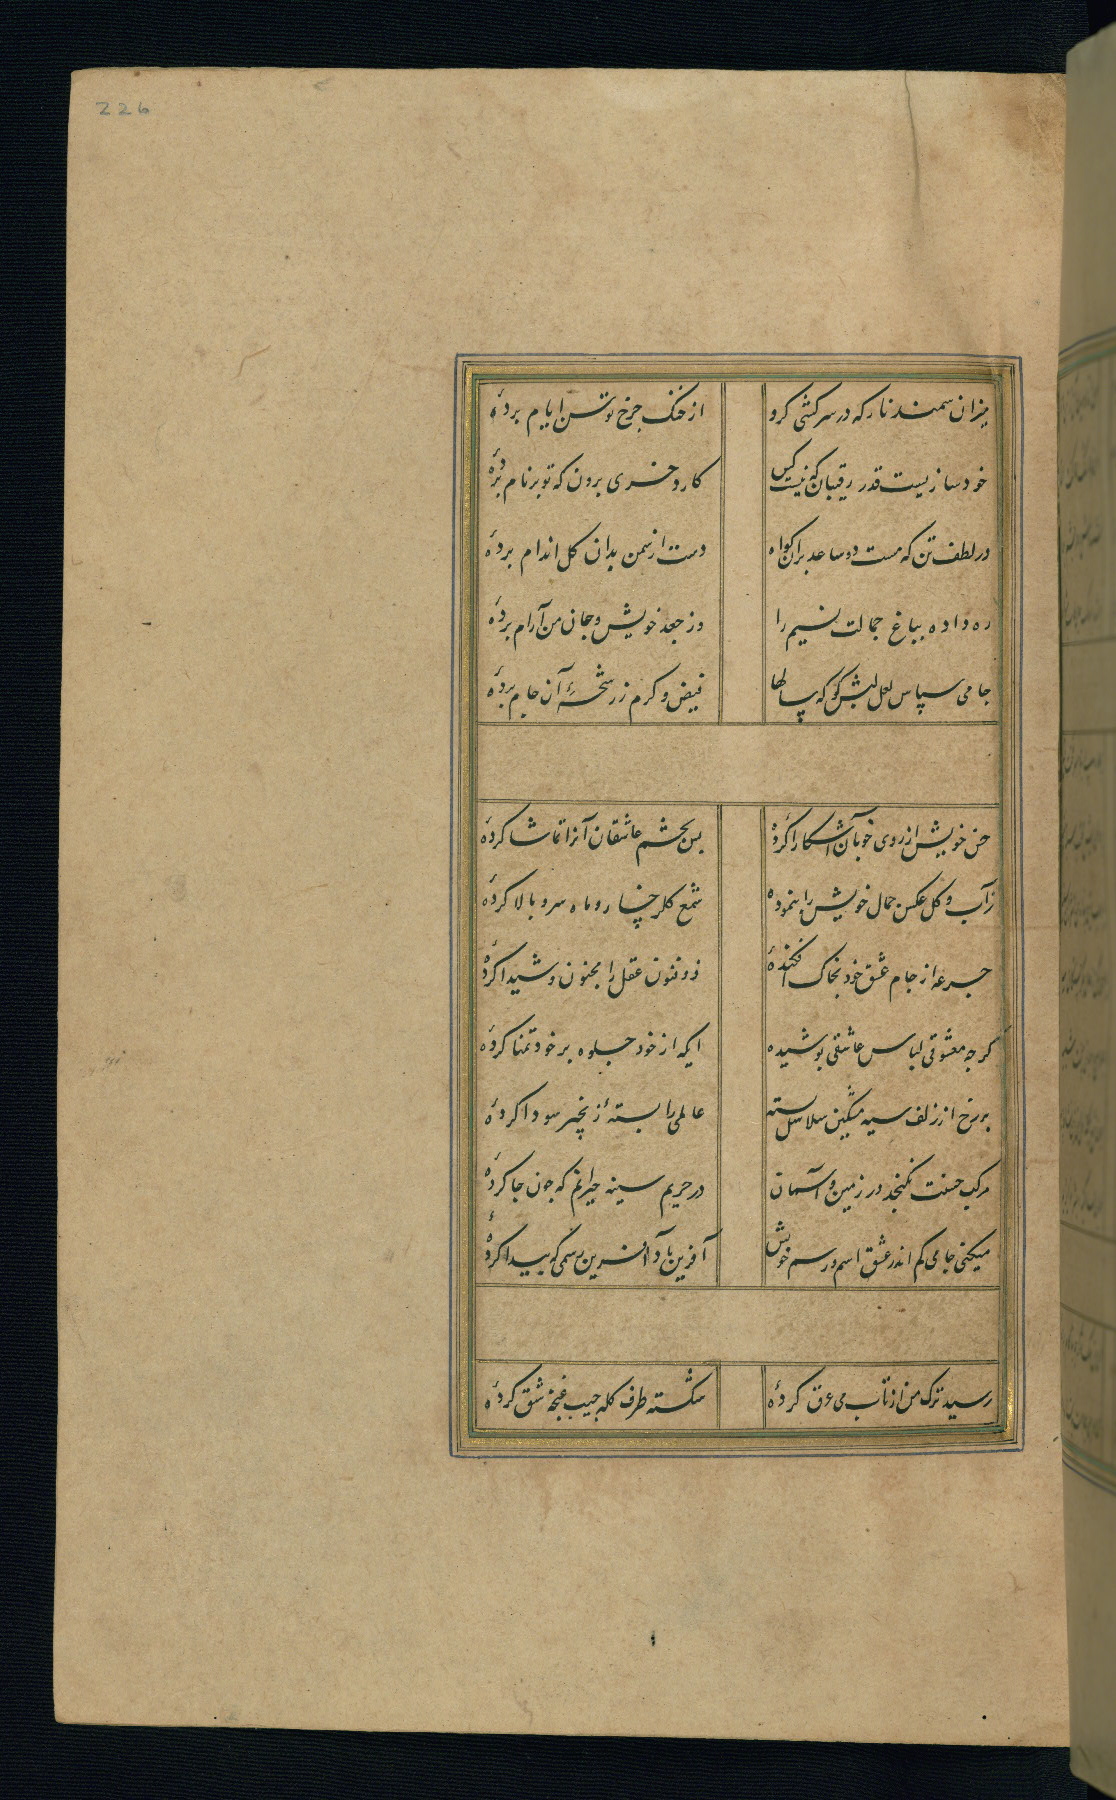 226
میزان سمند ناز که در سرکشی گرو
از خنک چرخ توسن ایام بردهٔ
خود ساز نیست قدر رقیبان که نیست کس
کار دخسری برون که تو بر نام بردهٔ
در لطف تن که هست دو ساعد بران کواه
دست از سمن بدان کل اندام بردهٔ
ره داده بباغ جمالت نسیم را
وز جعد خویش و جان من آرام بردهٔ
جامی سپاس لعل لبش کو که سالها
فیض و کرم ز رشحهٔ آن جام بردهٔ
حسن خویش از روی خوبان آشکارا کردهٔ
پس بچشم عاشقان آنرا تماشا کردهٔ
زآب و کل عکس جمال خویش را بنمودهٔ
شمع کلرخسار و ماه سرو بالا کردهٔ
جرعه از جام عشق خود بخاک افکندهٔ
ذو فنون عقل را مجنون و شیدا کردهٔ
کرچه معشوقی لباس عاشقی پوشیدهٔ
ایکه از خود جلوه بر خود تمنا کردهٔ
بر رخ از زلف سیه مشکین سلاسل بستهٔ
عالمی را بستهٔ زنجیر سودا کردهٔ
موکب حسنت نکنجد در زمین و آسمان
در حریم سینه حیرانم که چون جا کردهٔ
میکنی جامی کم اندر عشق اسم و رسم خویش
آفرین بادا آفرین رسمی که پیدا کردهٔ
رسید ترک من از تاب می عرق کردهٔ
شکسته طرف کله جیب غنچه شق کردهٔ